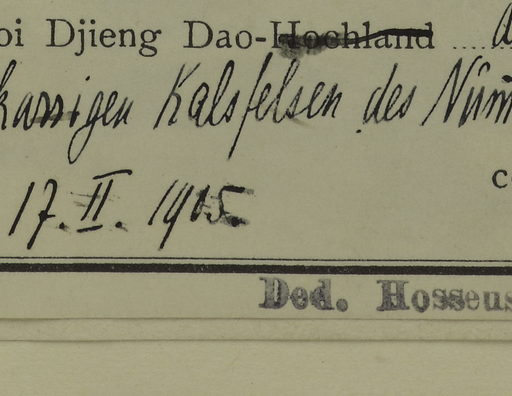 oi Djieng Dao-Hochland
karrigen Kalsfelsen des
17. II. 1905.
Ded. Hosseus